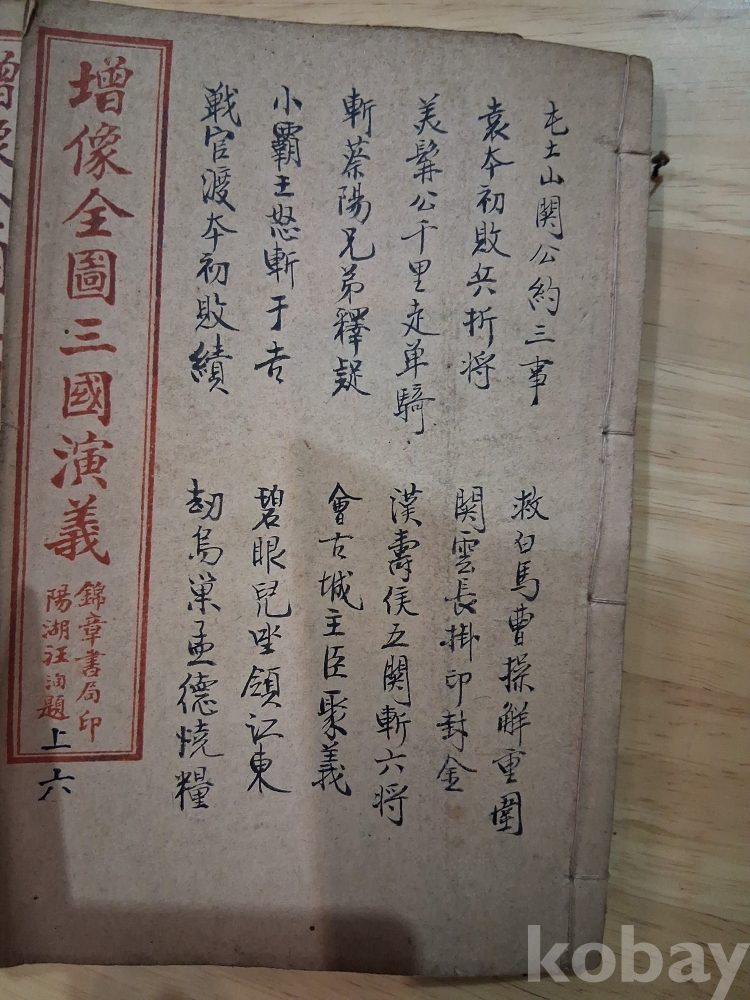 屯土山関公約三事
救白馬曹操解重圍
袁本初敗兵折将
関雲長掛印封金
美髯公千里走单騎
漢壽侯五関斬六将
斬蔡陽兄弟釋疑
會古城主臣聚義
小霸王怒斬于吉
碧眼兒坐領江東
戦官渡本初敗績
劫烏巢孟德燒糧
增像全圖三國演義
錦章書局印
陽湖汪洵題
上六
增像全圖
kobay